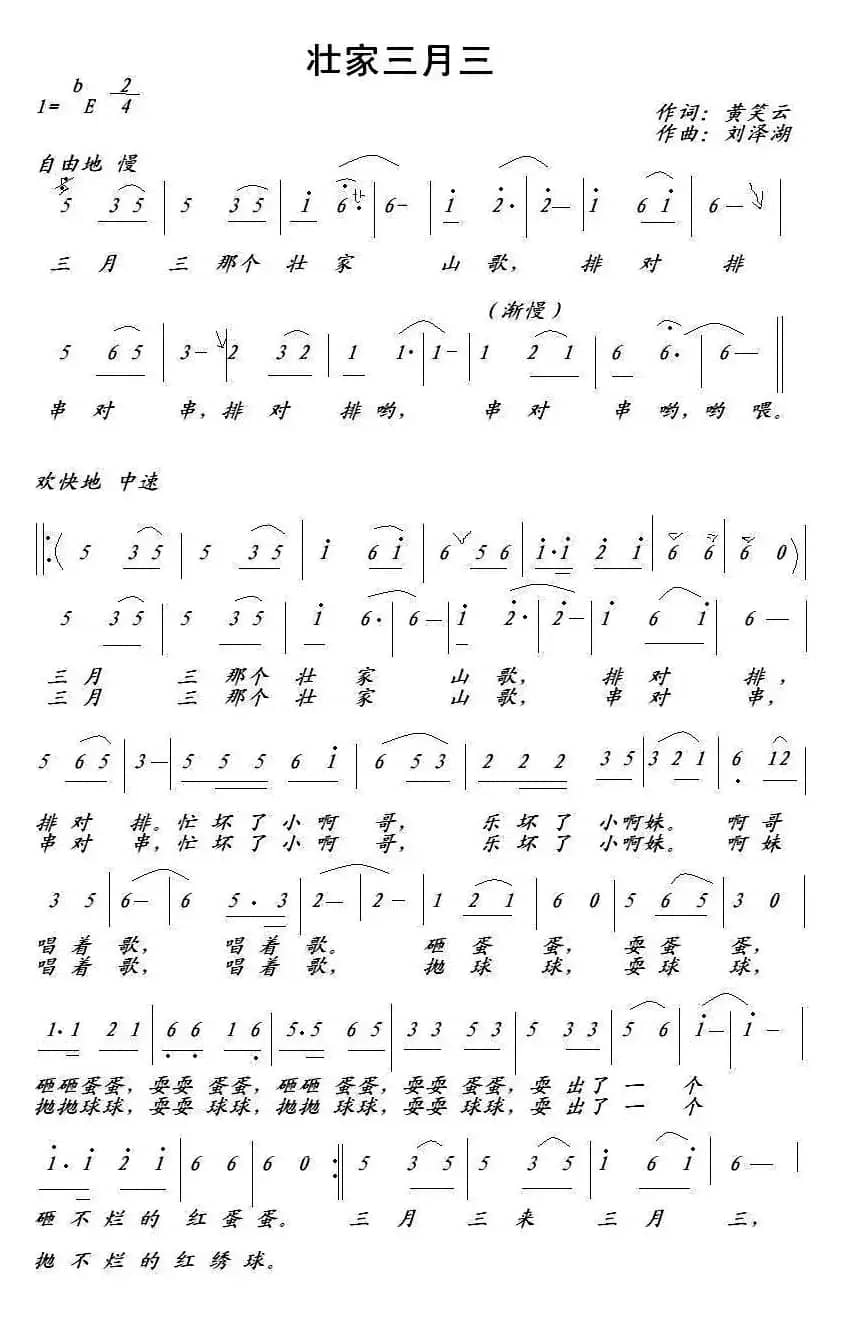 壮家三月三
1=bE 2/4
作词：黄笑云
作曲：刘泽湖
自由地 慢
5 3 5 | 5 3 5 | i 6· | 6– | i 2· | 2— | i 6 i | 6— |
三 月 三 那 个 壮 家 山 歌， 排 对 排
（渐慢）
5 6 5 | 3– | 2 3 2 | 1 1· | 1– | 1 2 1 | 6 6· | 6— ||
串 对 串，排 对 排 哟， 串 对 串 哟，哟 喂。
欢快地 中速
||:( 5 3 5 | 5 3 5 | i 6 i | 6 5 6 | i·i 2 i | 6 6 | 6 0 ) |
5 3 5 | 5 3 5 | i 6· | 6— | i 2· | 2— | i 6 i | 6— |
三 月 三 那 个 壮 家 山 歌， 排 对 排，
三 月 三 那 个 壮 家 山 歌， 串 对 串，
5 6 5 | 3— | 5 5 5 6 i | 6 5 3 | 2 2 2 3 5 | 3 2 1 | 6 12 |
排 对 排。忙 坏 了 小 啊 哥， 乐 坏 了 小啊妹。 啊哥
串 对 串，忙 坏 了 小 啊 哥， 乐 坏 了 小啊妹。 啊妹
3 5 | 6— | 6 5·3 | 2— | 2– | 1 2 1 | 6 0 | 5 6 5 | 3 0 |
唱 着 歌， 唱 着 歌。 砸 蛋 蛋， 耍 蛋 蛋，
唱 着 歌， 唱 着 歌， 抛 球 球， 耍 球 球，
1·1 2 1 | 6 6 1 6 | 5·5 6 5 | 3 3 5 3 | 5 3 3 | 5 6 | i– | i— |
砸砸蛋蛋，耍耍 蛋蛋，砸砸 蛋蛋，耍耍 蛋蛋，耍 出 了 一 个
抛抛球球，耍耍 球球，抛抛 球球，耍耍 球球，耍 出 了 一 个
i·i 2 i | 6 6 | 6 0 :|| 5 3 5 | 5 3 5 | i 6 i | 6— |
砸 不 烂 的 红 蛋 蛋。 三 月 三 来 三 月 三，
抛 不 烂 的 红 绣 球。